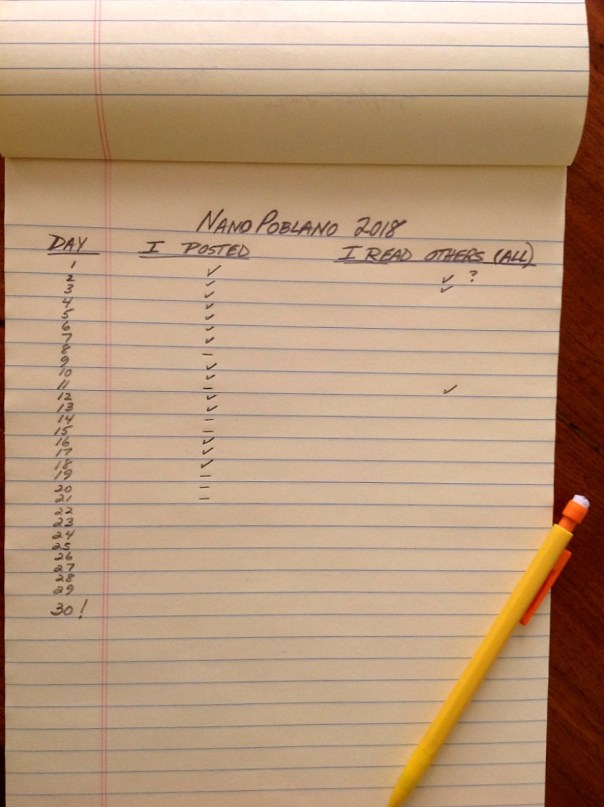 NANO POBLANO 2018
DAY I POSTED I READ OTHERS (ALL)
1 ✓
2 ✓ ✓ ?
3 ✓ ✓
4 ✓
5 ✓
6 ✓
7 ✓
8 –
9 ✓
10 ✓
11 – ✓
12 ✓
13 ✓
14 –
15 –
16 ✓
17 ✓
18 ✓
19 –
20 –
21 –
22
23
24
25
26
27
28
29
30!